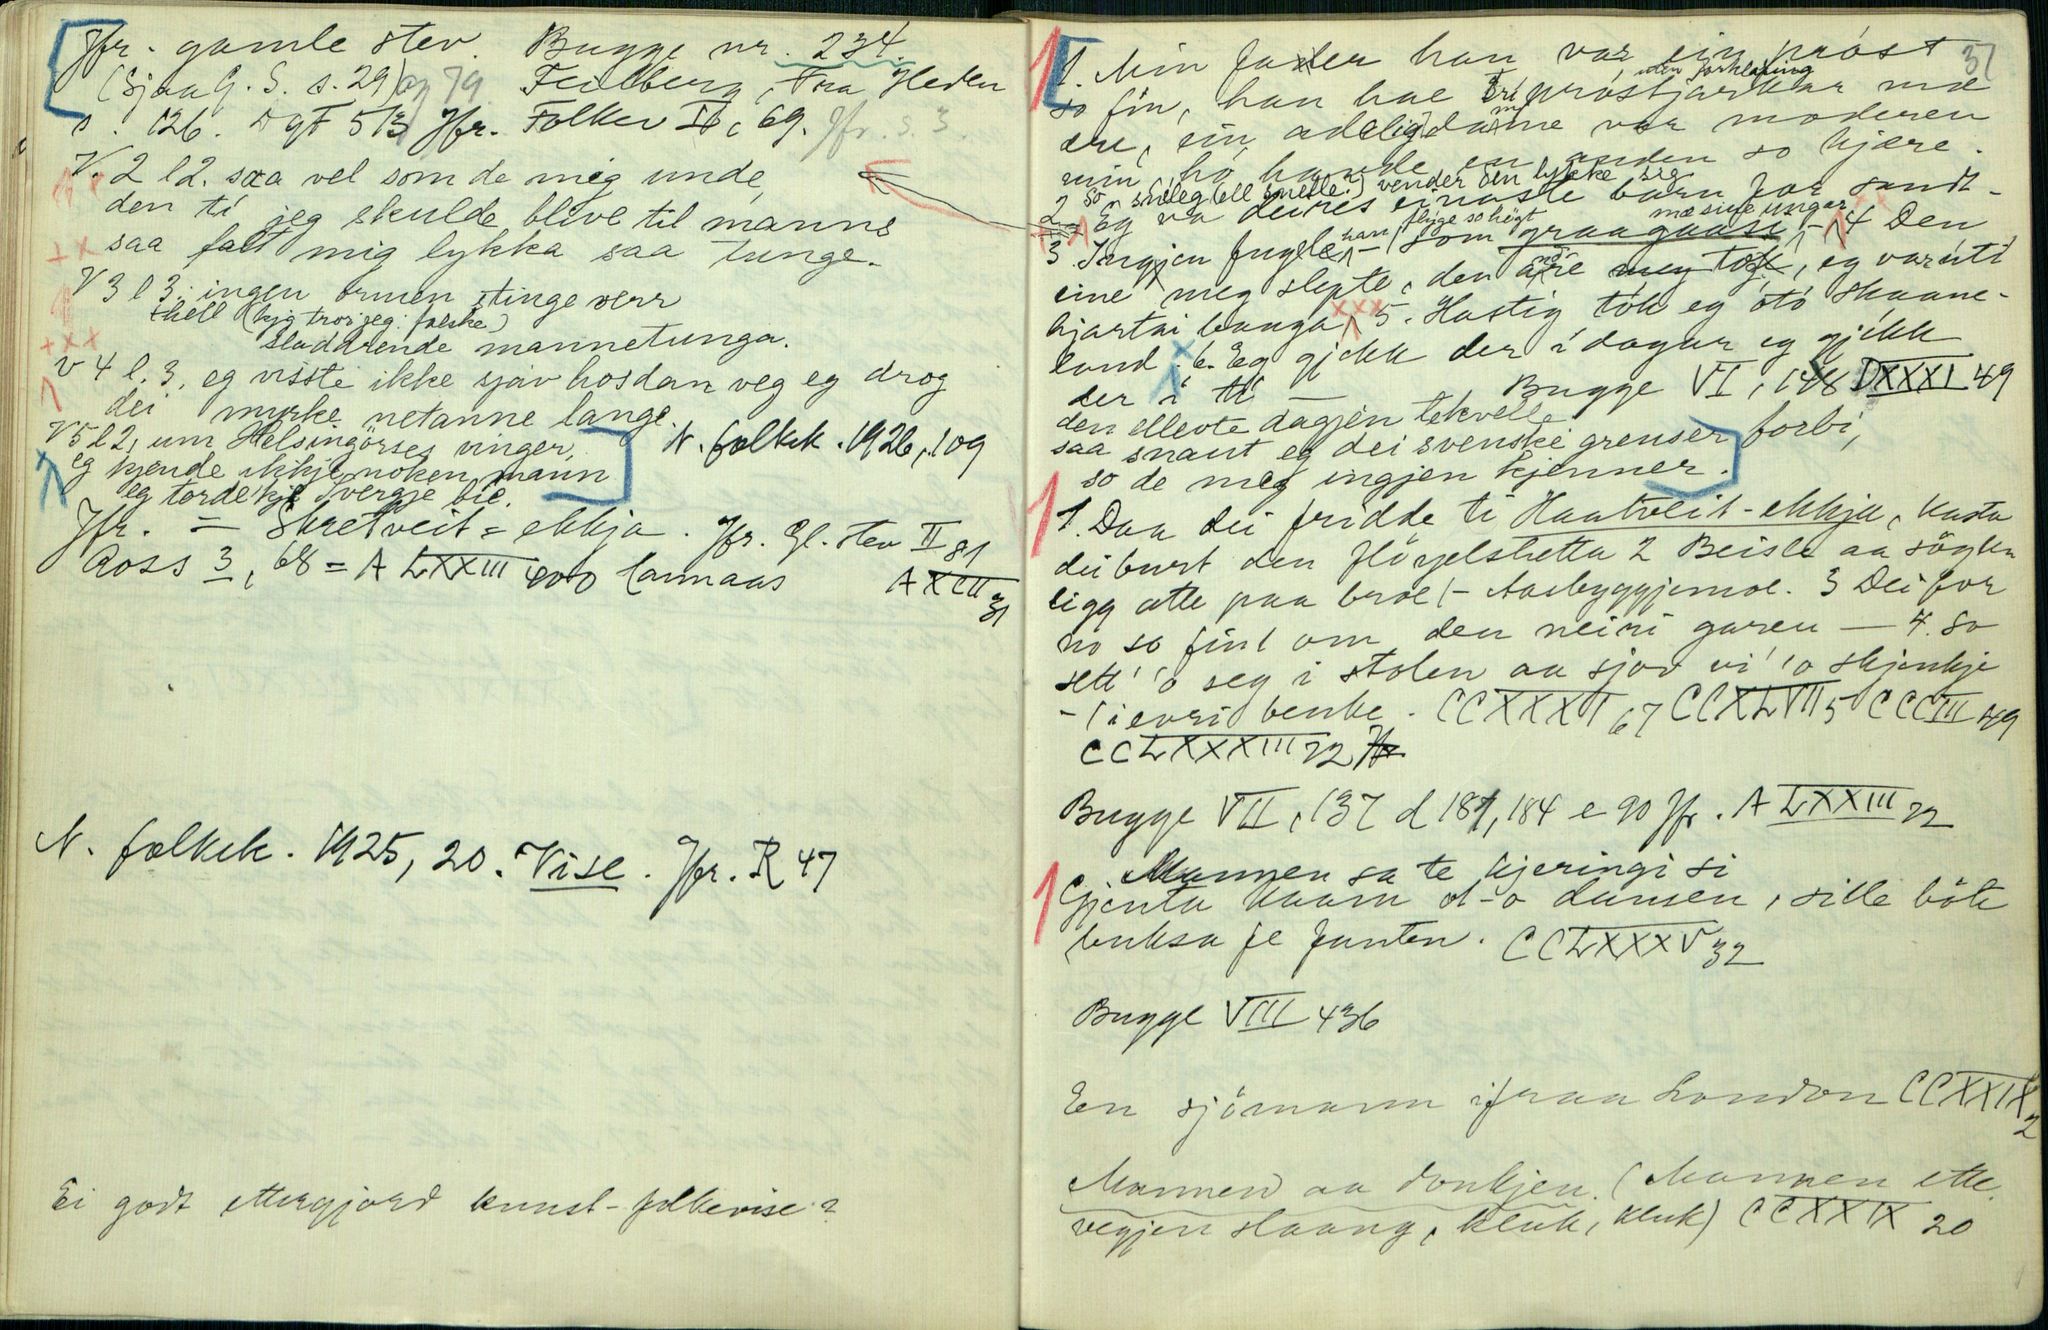 Jfr. gamle stev. Bugge nr. 234.
(Sjaa G. S. s. 29) og 79 Feilberg, Fra Heden
s. 126. DgF 513 Jfr. Folkev II, 69. Jfr. s. 3.
V. 2 l 2. saa vel som de mig unde,
den ti jeg skulde blive til manns
saa falt mig lykka saa tunge.
V 3 l 3: ingen ormen stinge verr
hell (kjg trorjeg: falske)
sladdrende mannetunga.
V 4 l. 3, eg visste ikke sjav hosdan veg eg drog
dei myrke netanne lange.
V 5 l 2, um Helsingörses vinger,
eg kjende ikkje noken mann
eg torde kje Sverge bie.
N. folkek. 1926, 109
Jfr. = Skretveit = ekkja. Jfr. Gl. stev II 81
Ross 3, 68 = A LXXIII 400 Lannaas A XCII 31
N. folkek. 1925, 20. Vise. Jfr. R 47
Ei godt ettergjord kunst-folkevise?
37
1. Min fader han var ein próst
so fin, han hae tri próstjarkar mæ
uden forklaring
ære, ein adelig dame var moderen
min, hó hande en anden so kjære.
so sneleg (ell snelle?) vender den lykke seg
2 Eg va deires einaste barn for sandt-
han flyge so högt mæ sine ungar
3. Ingjen fugle – (som graagaasi – 4 Den
eine meg slepte, den are meg tok, eg var úti
hjartai banga 5. Hastig tók eg ótó Skaane-
land. 6. Eg gjekk der i dagar eg gjikk
der i ti — Bugge VI, 148 DXXXI 49
den ellevte dagjen tekvelle
saa snaut eg dei svenske grenser forbi,
so de meg ingjen kjenner.
1. Daa dei fridde ti Haatveit-ekkja, kasta
dei burt den flöyelshetta 2 Beisle aa söglen
ligg atte paa broe (– Aasbyggjemoe. 3 Dei for
no so fint om den neiri garen — 4. So
sett' 'o seg i stolen aa sjov vi' 'o skjenkje
– (i övri benke. CCXXXI 67 CCXLVII 5 CCCIII 49
CCLXXXIII 22
Bugge VII, 137 d 187, 184 e 90 Jfr. A LXXIII 22
Mannen sa te kjeringi si
Gjenta kaam d-o dansen, sille böte
buksa fe fanten. CCLXXXV 32
Bugge VIII 436
En sjömann ifraa London CCXXIX 2
Mannen aa donkjen. (Mannen ette
vegjen slaang, kluk, kluk) CCXXIX 20